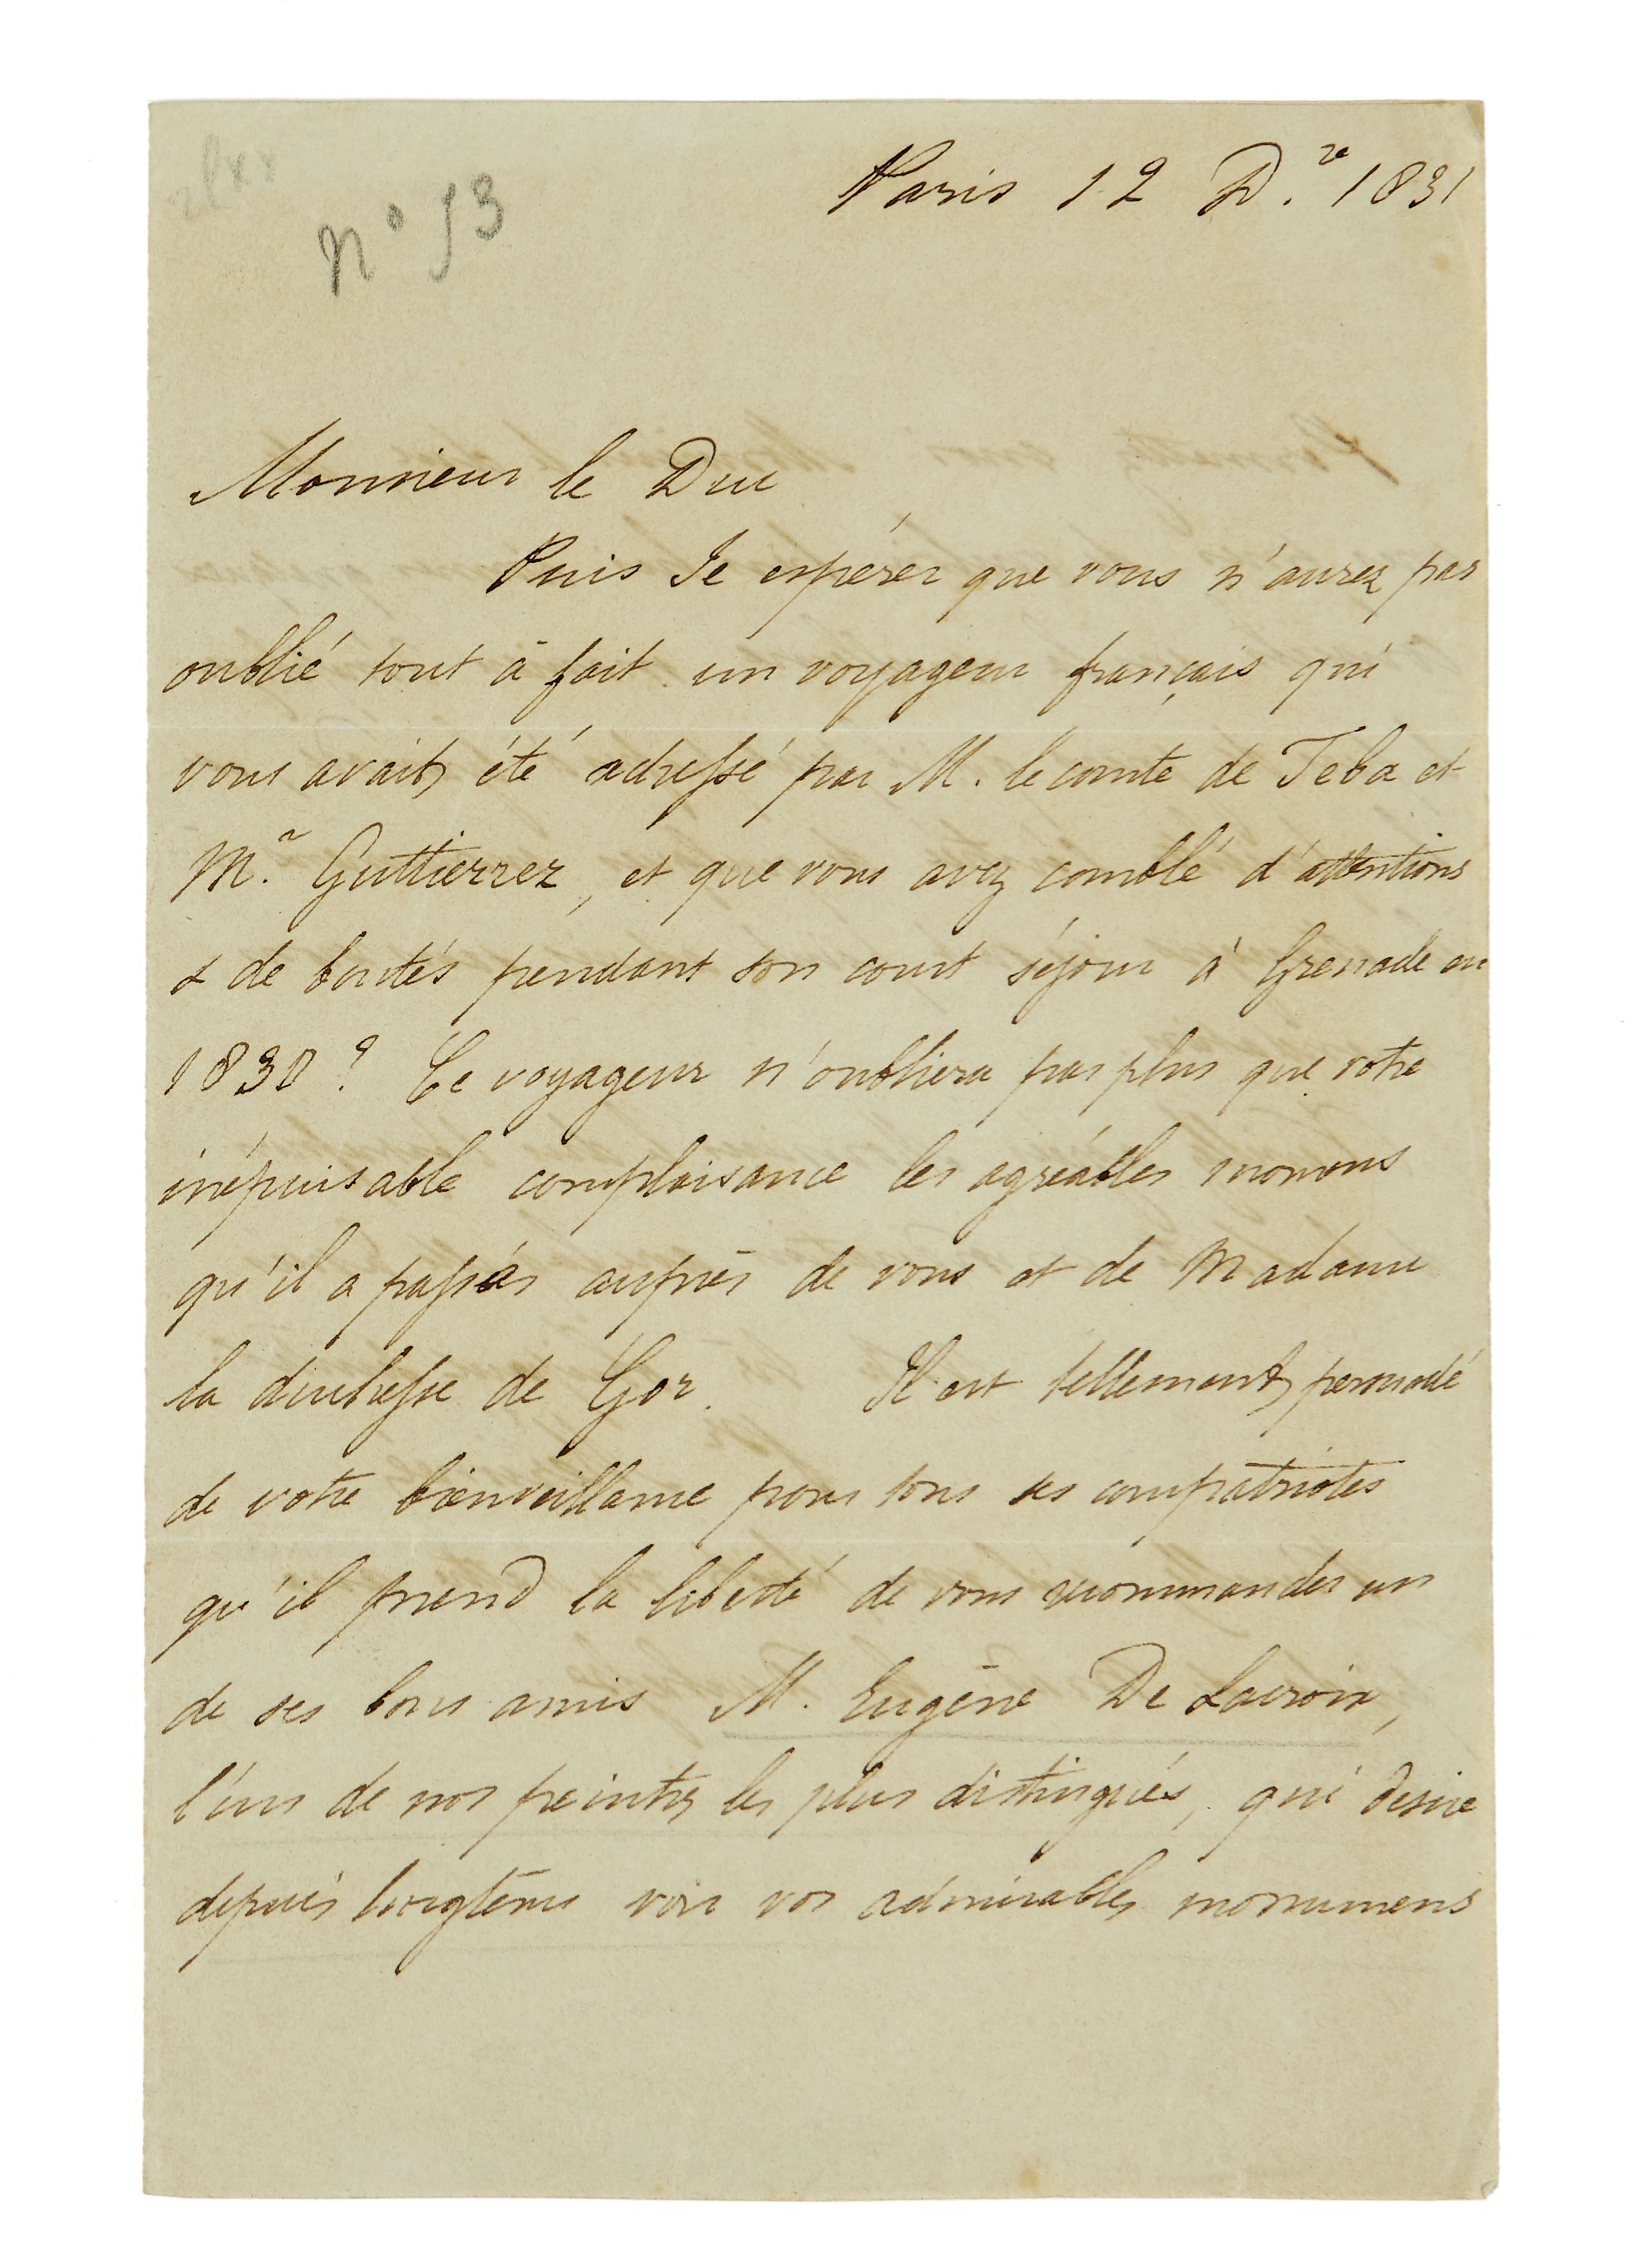 Paris 12 D.re 1831
n° 53
Monsieur le Duc
Puis Je espérer que vous n'aurez pas
oublié tout à fait un voyageur français qui
vous avait été adressé par M. le comte de Teba et
Me. Guttierrez, et que vous avez comblé d'attentions
& de bontés pendant son court séjour à Grenade en
1830 ? Ce voyageur n'oubliera pas plus que votre
inépuisable complaisance les agréables momens
qu'il a passés auprès de vous et de Madame
la duchesse de Gor. Il est tellement persuadé
de votre bienveillance pour tous ses compatriotes
qu'il prend la liberté de vous recommander un
de ses bons amis M. Eugène De Lacroix,
l'un de nos peintres les plus distingués, qui desire
depuis longtems voir vos admirables monumens